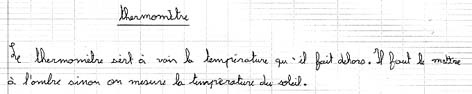 thermomètre
Le thermomètre sert à voir la température qu'il fait dehors. Il faut le mettre
à l'ombre sinon on mesure la température du soleil.